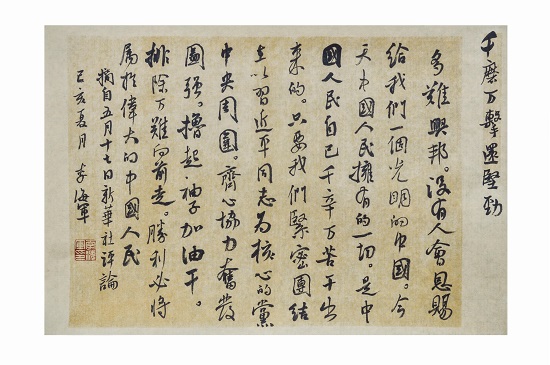 千磨万擊還堅勁
多難興邦。没有人會恩賜
給我們一個光明的中國。今
天中國人民擁有的一切。是中
國人民自己千辛万苦干出
來的。只要我們緊密團结
在以習近平同志为核心的黨
中央周圍。齊心協力奮發
圖强。撸起袖子加油干。
排除万難向前走。勝利必将
属於偉大的中國人民
摘自五月十七日新華社評論
己亥夏月 李海軍